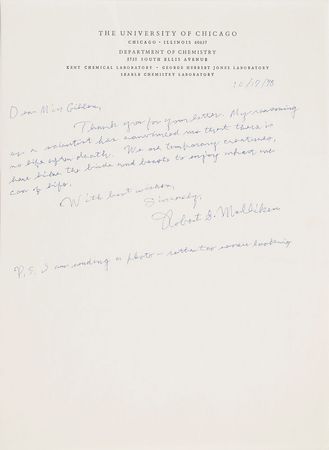 THE UNIVERSITY OF CHICAGO
CHICAGO · ILLINOIS 60637
DEPARTMENT OF CHEMISTRY
5735 SOUTH ELLIS AVENUE
KENT CHEMICAL LABORATORY · GEORGE HERBERT JONES LABORATORY
SEARLE CHEMISTRY LABORATORY
Dear Miss
Thank you for your letter. My reasoning
as a scientist has convinced me that there is
no life after death. We are temporary creatures,
here like the birds and beasts to enjoy what we
can of life.
With best wishes,
Sincerely,
Robert S. Mulliken
P.S. I am sending a photo - rather too severe looking